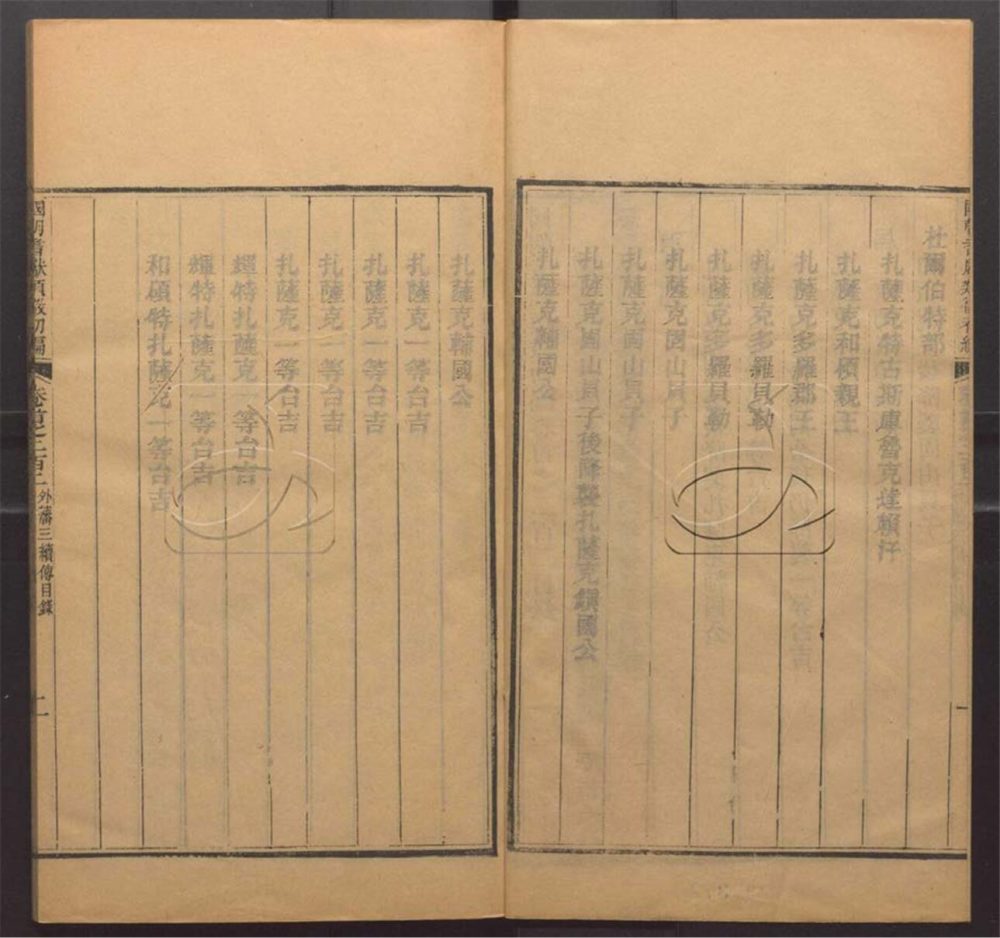 杜爾伯特部
扎薩克特古斯庫魯克達賴汗
扎薩克和碩親王
扎薩克多羅郡王
扎薩克多羅貝勒
扎薩克多羅貝勒
扎薩克固山貝子
扎薩克固山貝子
扎薩克固山貝子後降襲扎薩克鎮國公
扎薩克輔國公
一
扎薩克輔國公
扎薩克一等台吉
扎薩克一等台吉
扎薩克一等台吉
扎薩克一等台吉
輝特扎薩克一等台吉
輝特扎薩克一等台吉
和碩特扎薩克一等台吉
國朝耆獻類徵初編
卷首之二百二 外藩三續傳目錄
二